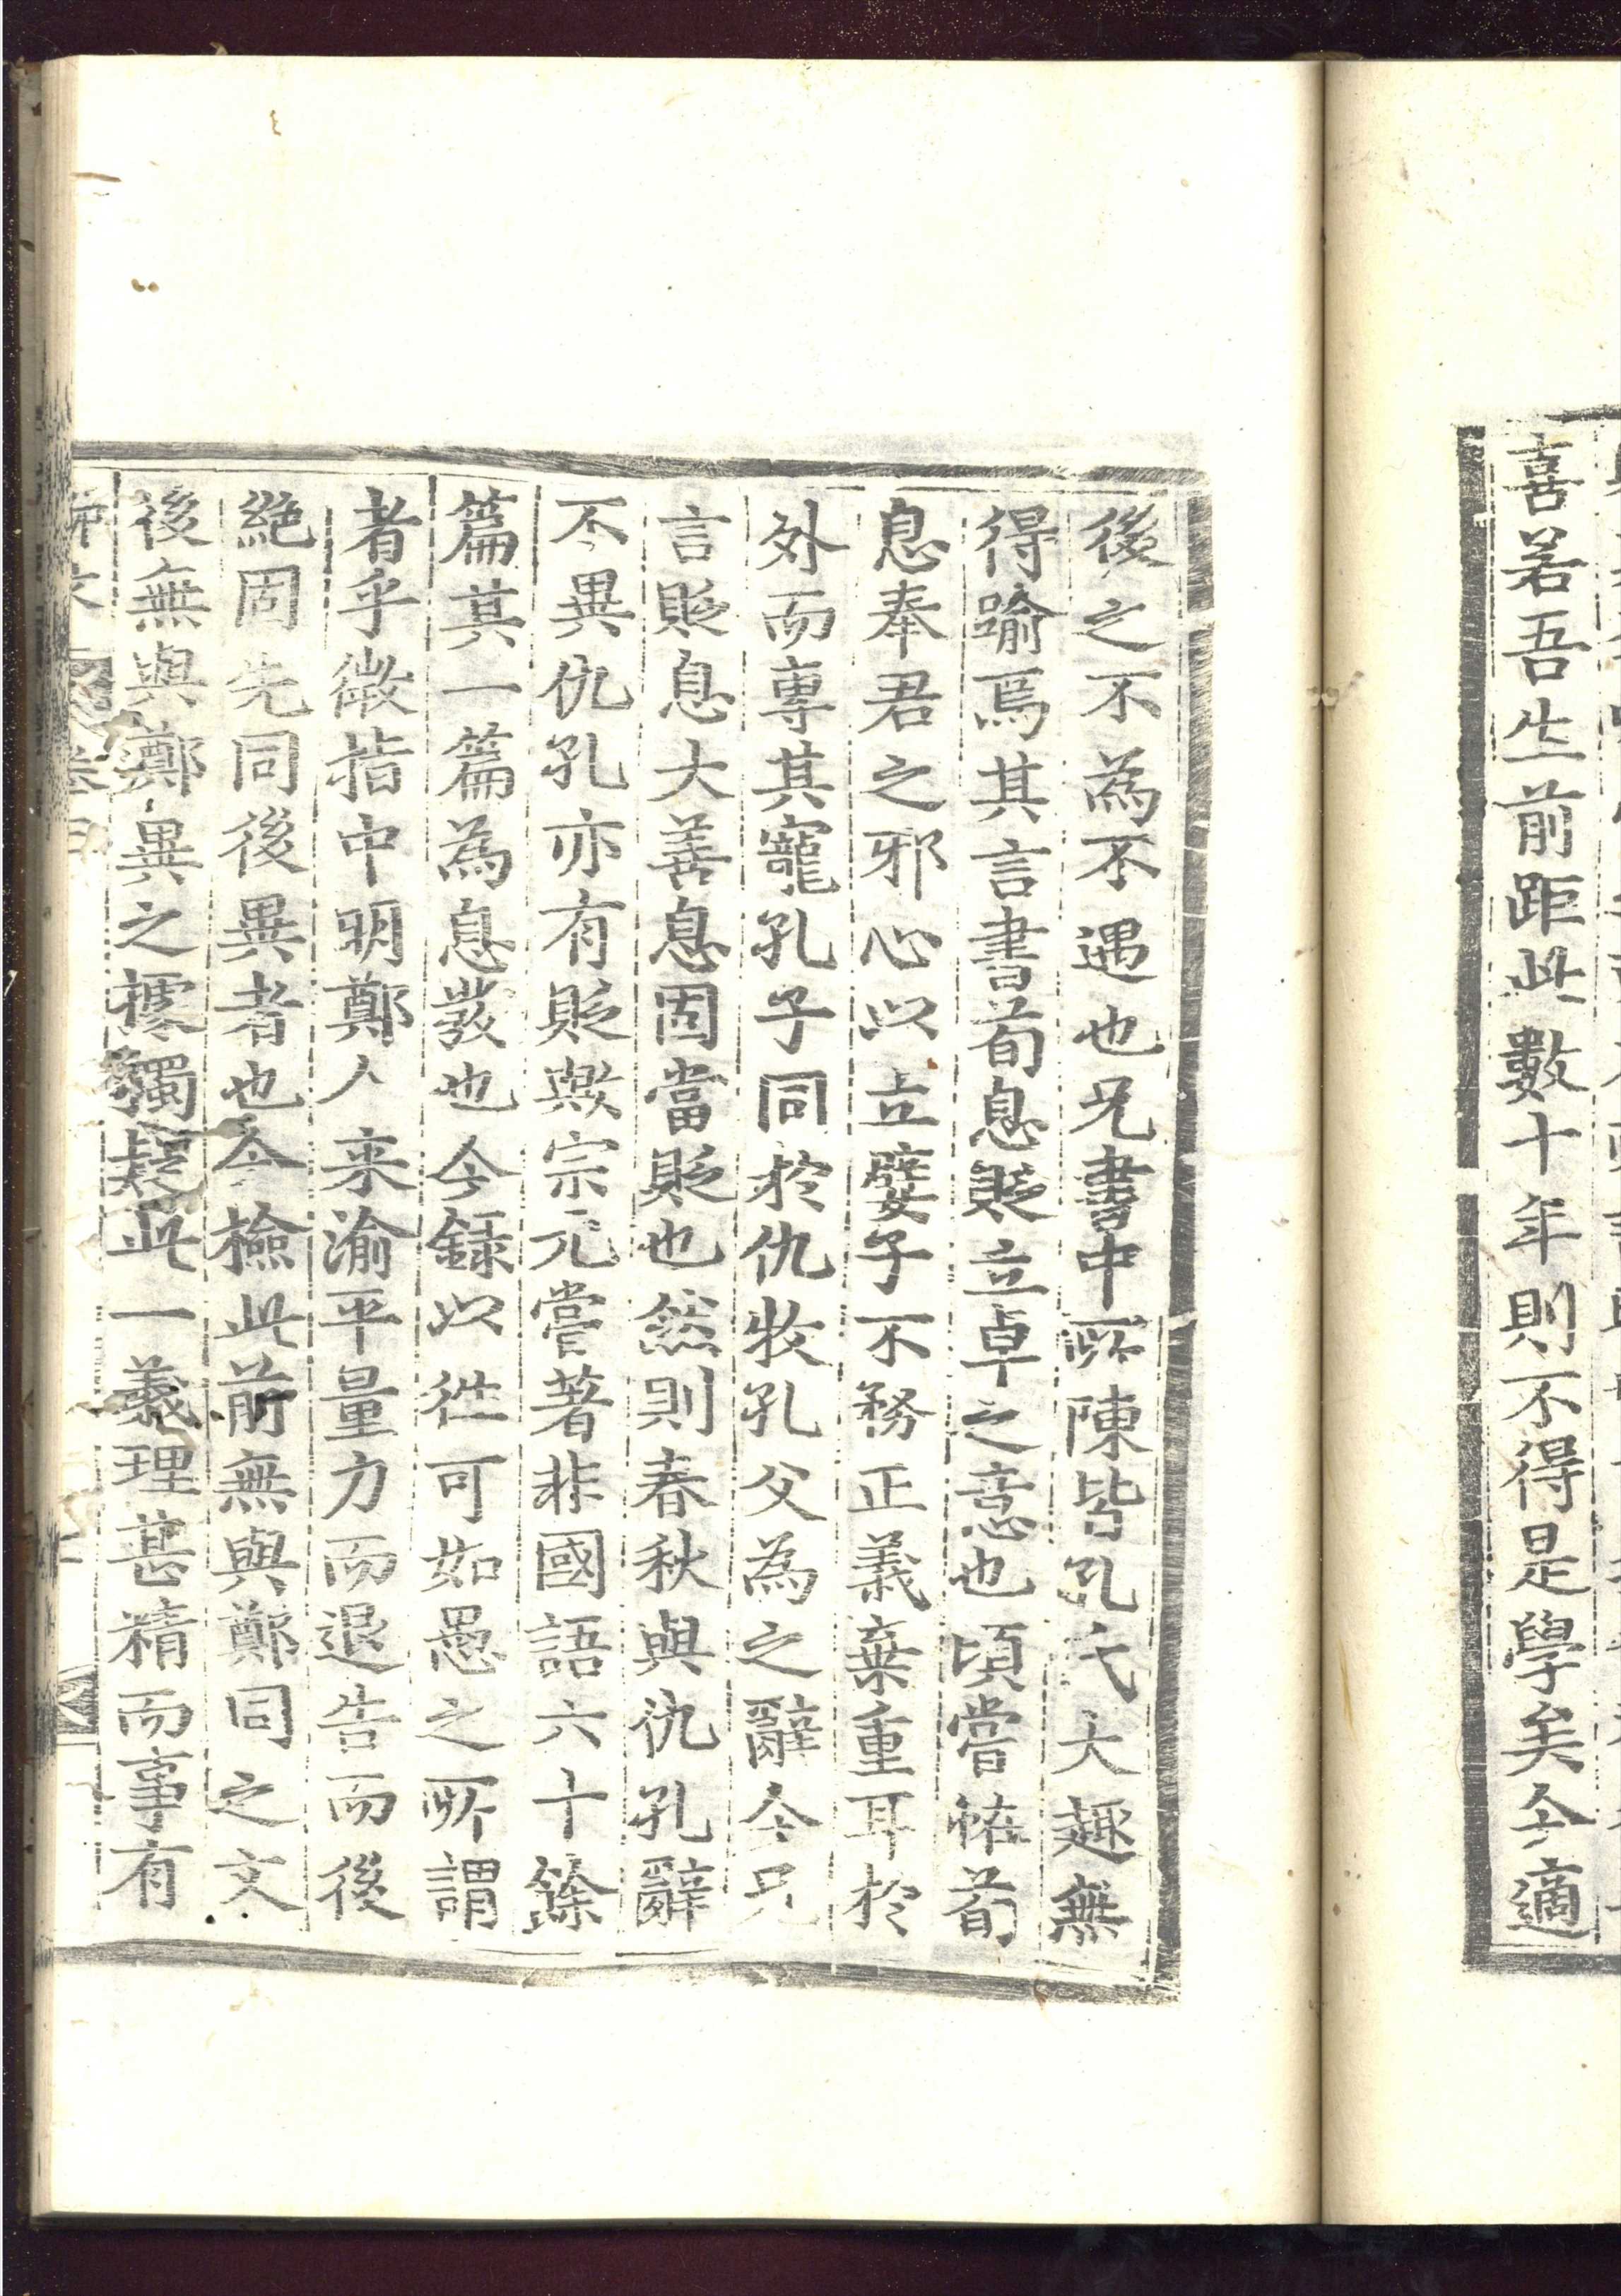 喜若吾生前距此數十年則不得是學矣今適
後之不為不遇也兄書中所陳皆孔氏大趣無
得踰焉其言書荀息貶立卓之意也頃嘗恠荀
息奉君之邪心以立嬖子不務正義棄重耳於
外而專其寵孔子同於仇牧孔父為之辭今兄
言貶息大善息固當貶也然則春秋與仇孔辭
不異仇孔亦有貶歟宗元嘗著非國語六十餘
篇其一篇為息發也今録以徃可如愚之所謂
者乎微指中明鄭人来渝平量力而退告而後
絶固先同後異者也今檢此前無與鄭同之文
後無與鄭異之據獨疑此一義理甚精而事有